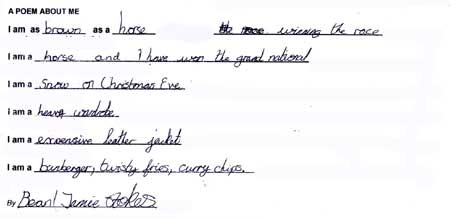 A POEM ABOUT ME
I am as brown as a horse winning the race
I am a horse and I have won the grand national
I am a Snow on Christmas Eve
I am a heavy wardrobe
I am a expensive leather jacket
I am a bunberger, twisty fries, curry chips.
By Jamie